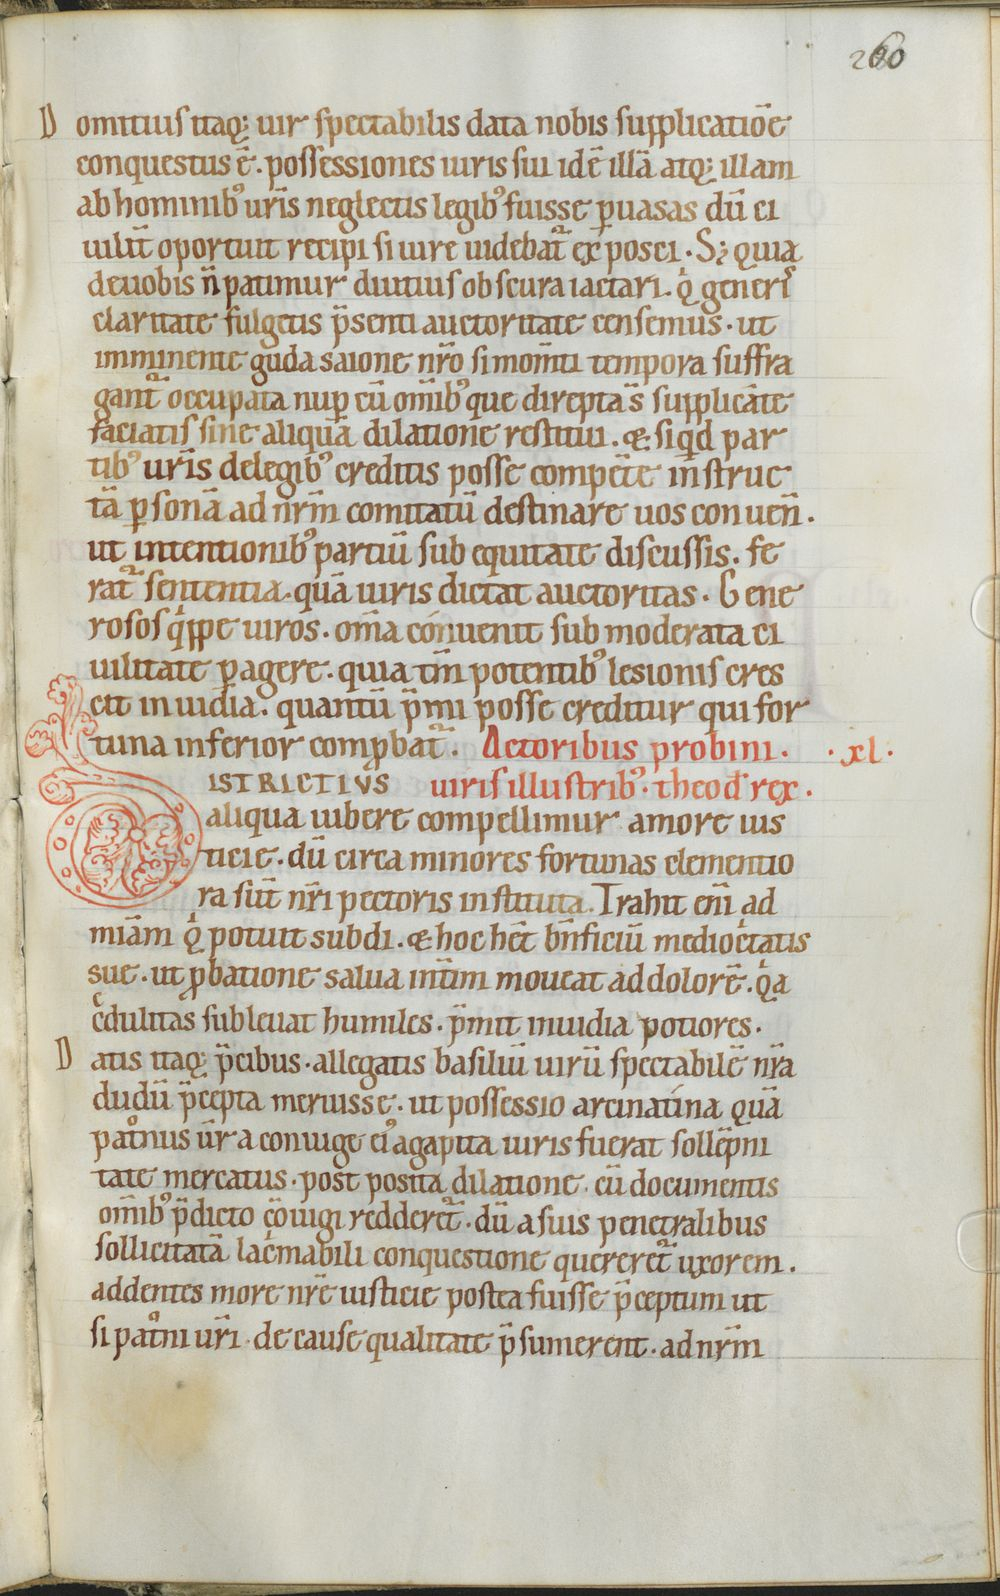 260
Domitius itaq; uir spectabilis data nobis supplicatiōe
conquestus ē. possessiones iuris sui idē illā atq; illam
ab hominib; ur̄is neglectis legib; fuisse ꝑuasas dū ci
uilit̄ oportuit recipi si iure uidebat᷑ exposci. S; quia
de uobis n̄ patimur diutius obscura iactari. q̇ generi
claritate fulgetis p̄senti auctoritate censemus. ut
imminente guda saione nr̄o si mom̄ti tempora suffra
gant᷑ occupata nuꝑ cū om̄ib; que direpta s̄ supplicāte
faciatis sine aliqua dilatione restitui. & siqd par
tib; ur̄is de legib; creditis posse compēte instruc
tā ꝑsonā ad nr̄m comitatū destinare uos conuen̄.
ut intentionib; partiū sub equitate discussis. fe
rat᷑ sententia. quā iuris dictat auctoritas. Gene
rosos q̇ppe uiros. om̄a conuenit sub moderata ci
uilitate ꝑagere. quia tm̄ potentib; lesionis cres
cit inuidia. quantū p̄mi posse creditur qui for
tuna inferior comꝓbat᷑. Actoribus probini. .xl.
DISTRICTIVS uiris illustrib;. theod̄ rex.
aliqua iubere compellimur amore ius
ticie. dū circa minores fortunas clementio
ra sūt nr̄i pectoris instituta. Trahit eni ad
miām q̇ potuit subdi. & hoc hēt bn̄ficiū mediocṫatis
sue. ut ꝓbatione salua intīm moueat ad dolorē. q̇a
cͤdulitas subleuat humiles. p̄mit inuidia potiores.
Datis itaq; p̄cibus. allegatis basiliū uirū spectabilē nr̄a
dudū p̄cepta meruisse. ut possessio arcinatina quā
patͦnus ūr a coniuge ei; agapita iuris fuerat sollēpni
tate mercatus. post posita dilatione. cū documentis
om̄ib; p̄dicto cōiugi redderet᷑. dū a suis penetralibus
sollicitatā lacͥmabili conquestione quereret᷑ uxorem.
addentes more nr̄e iusticie postea fuisse p̄ceptum ut
si patͦni ur̄i. de cause qualitate p̄sumerent. ad nr̄m